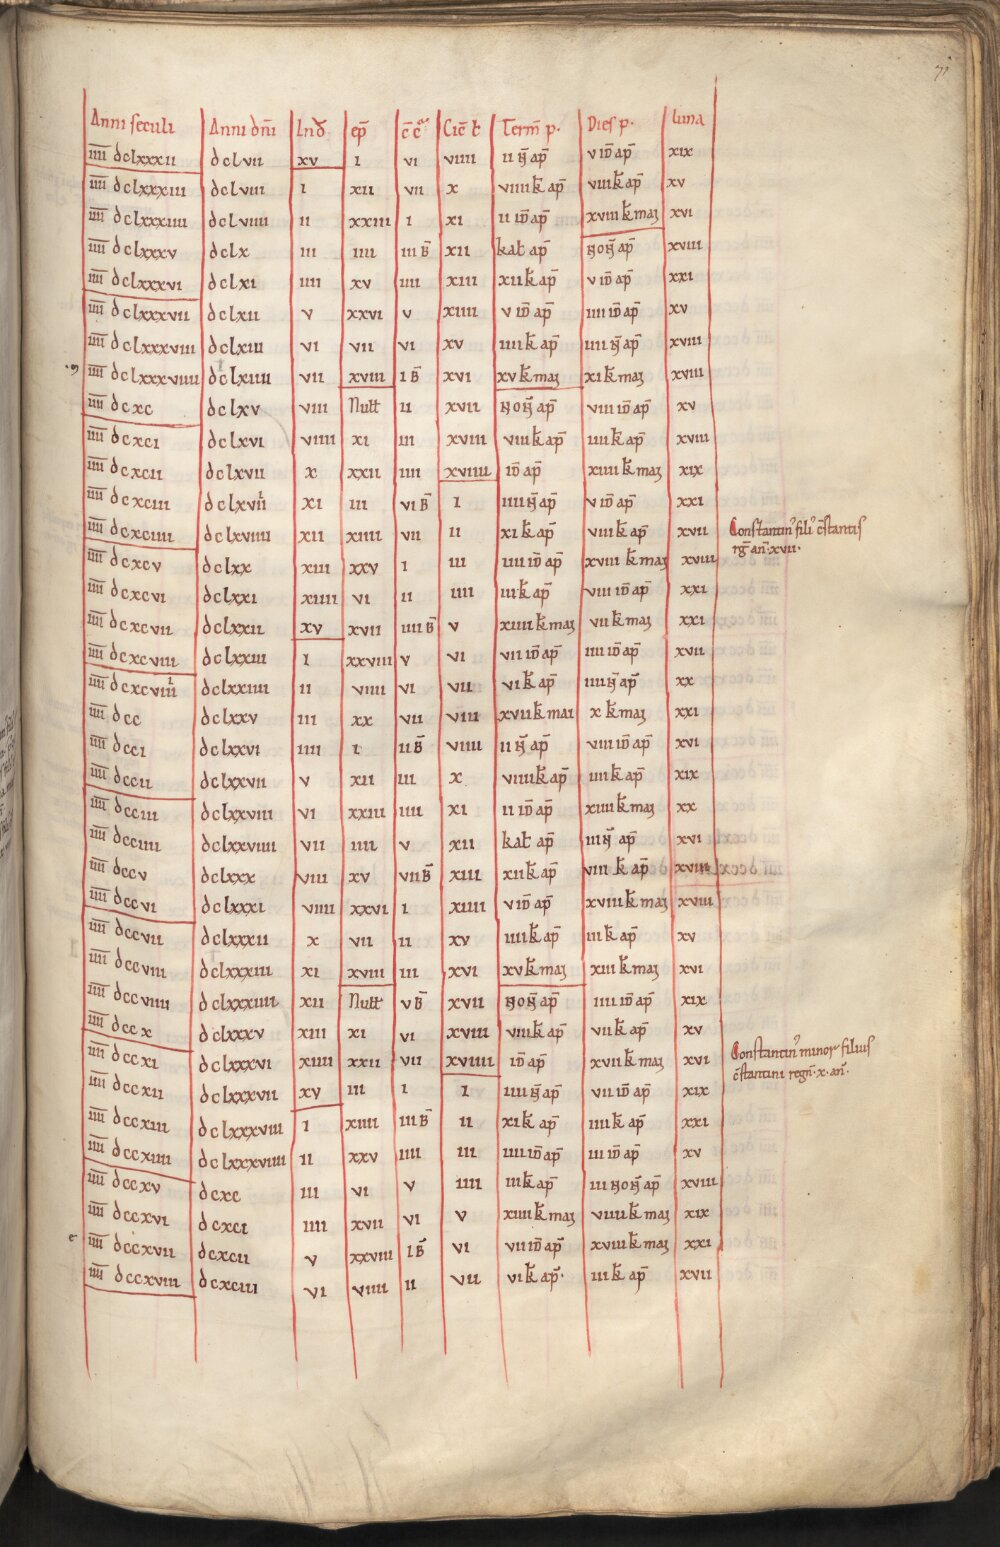 71
Anni seculi Anni dn̄i Ind̄ ep̄ c̄c̄ Cic̄ł Term̄ p. Dies p. luna
īīīī dclxxxii dclvii xv i vi viiii ii n̄ ap̄ v id̄ ap̄ xix
īīīī dclxxxiii dclviii i xii vii x viiii k̄ ap̄ viii k̄ ap̄ xv
īīīī dclxxxiiii dclviiii ii xxiii i xi ii id̄ ap̄ xviii k̄ mai xvi
īīīī dclxxxv dclx iii iiii iii B̄ xii kał ap̄ non̄ ap̄ xviii
īīīī dclxxxvi dclxi iiii xv iiii xiii xii k̄ ap̄ v id̄ ap̄ xxi
īīīī dclxxxvii dclxii v xxvi v xiiii v id̄ ap̄ iiii id̄ ap̄ xv
īīīī dclxxxviii dclxiii vi vii vi xv iiii k̄ ap̄ iiii n̄ ap̄ xviii
īīīī dclxxxviiii dclxiiii vii xviii i B̄ xvi xv k̄ mai xi k̄ mai xviii
īīīī dcxc dclxv viii Nułł ii xvii non̄ ap̄ viii id̄ ap̄ xv
īīīī dcxci dclxvi viiii xi iii xviii viii k̄ ap̄ iiii k̄ ap̄ xviii
īīīī dcxcii dclxvii x xxii iiii xviiii id̄ ap̄ xiiii k̄ mai xix
īīīī dcxciii dclxviii xi iii vi B̄ i iiii n̄ ap̄ v id̄ ap̄ xxi
īīīī dcxciiii dclxviiii xii xiiii vii ii xi k̄ ap̄ viii k̄ ap̄ xvii Constantin' fili' c̄stantis
rḡ an̄ xvii.
īīīī dcxcv dclxx xiii xxv i iii iiii id̄ ap̄ xviii k̄ mai xviii
īīīī dcxcvi dclxxi xiiii vi ii iiii iii k̄ ap̄ viii id̄ ap̄ xxi
īīīī dcxcvii dclxxii xv xvii iiii B̄ v xiiii k̄ mai vii k̄ mai xxi
īīīī dcxcviii dclxxiii i xxviii v vi vii id̄ ap̄ iiii id̄ ap̄ xvii
īīīī dcxcviiii dclxxiiii ii viiii vi vii vi k̄ ap̄ iiii n̄ ap̄ xx
īīīī dcc dclxxv iii xx vii viii xvii k̄ mai x k̄ mai xxi
īīīī dcci dclxxvi iiii i ii B̄ viiii ii n̄ ap̄ viii id̄ ap̄ xvi
īīīī dccii dclxxvii v xii iii x viiii k̄ ap̄ iiii k̄ ap̄ xix
īīīī dcciii dclxxviii vi xxiii iiii xi ii id̄ ap̄ xiiii k̄ mai xx
īīīī dcciiii dclxxviiii vii iiii v xii kał ap̄ iii n̄ ap̄ xvi
īīīī dccv dclxxx viii xv vii B̄ xiii xii k̄ ap̄ viii k̄ ap̄ xviii
īīīī dccvi dclxxxi viiii xxvi i xiiii v id̄ ap̄ xviii k̄ mai xviii
īīīī dccvii dclxxxii x vii ii xv iiii k̄ ap̄ iii k̄ ap̄ xv
īīīī dccviii dclxxxiii xi xviii iii xvi xv k̄ mai xiii k̄ mai xvi
īīīī dccviiii dclxxxiiii xii Nułł v B̄ xvii non̄ ap̄ iiii id̄ ap̄ xix
īīīī dccx dclxxxv xiii xi vi xviii viii k̄ ap̄ vii k̄ ap̄ xv
īīīī dccxi dclxxxvi xiiii xxii vii xviiii id̄ ap̄ xvii k̄ mai xvi Constantin' minor filius
c̄stantini regn̄. x. an̄.
īīīī dccxii dclxxxvii xv iii i i iiii n̄ ap̄ vii id̄ ap̄ xix
īīīī dccxiii dclxxxviii i xiiii iii B̄ ii xi k̄ ap̄ iiii k̄ ap̄ xxi
īīīī dccxiiii dclxxxviiii ii xxv iiii iii iiii id̄ ap̄ iii id̄ ap̄ xv
īīīī dccxv dcxc iii vi v iiii iii k̄ ap̄ iii non̄ ap̄ xviii
īīīī dccxvi dcxci iiii xvii vi v xiiii k̄ mai viiii k̄ mai xix
īīīī dccxvii dcxcii v xxviii i B̄ vi vii id̄ ap̄ xviii k̄ mai xxi
īīīī dccxviii dcxciii vi viiii ii vii vi k̄ ap̄. iii k̄ ap̄ xvii